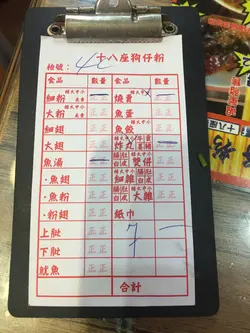 十八座狗仔粉
枱號：
食品 數量 食品 數量
細粉 正正 燒賣 正正
大粉 正正 魚蛋 正正
細翅 正正 魚餃 正正
大翅 正正 炸丸 正正
魚湯 正正 雙併 正正
·魚翅 正正 細雜 正正
·魚粉 正正 大雜 正正
·粉翅 正正 紙巾
上肶 正正
下肶 正正
魷魚 正正
合計